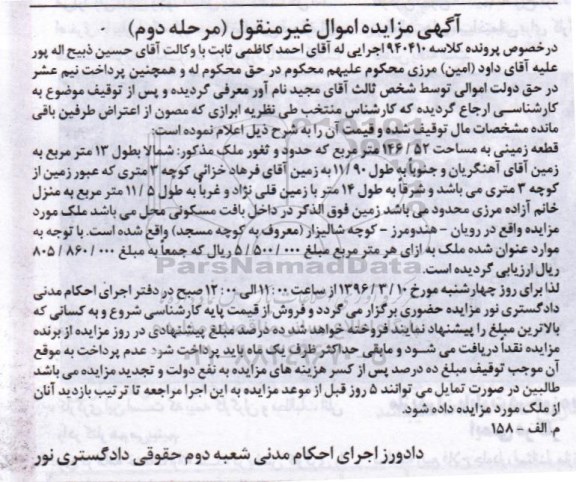 آگهی مزایده اموال غیرمنقول (مرحله دوم)
درخصوص پرونده کلاسه ۹۴۰۴۱۰ اجرایی له آقای احمد کاظمی ثابت با وکالت آقای حسین ذبیح اله پور
علیه آقای داود (امین) مرزی محکوم علیهم محکوم در حق محکوم له و همچنین پرداخت نیم عشر
در حق دولت اموالی توسط شخص ثالث آقای مجید نام آور معرفی گردیده و پس از توقیف موضوع به
کارشناسی ارجاع گردیده که کارشناس منتخب طی نظریه ابرازی که مصون از اعتراض طرفین باقی
مانده مشخصات مال توقیف شده و قیمت آن را به شرح ذیل اعلام نموده است:
قطعه زمینی به مساحت ۱۴۶/۵۲ متر مربع که حدود و ثغور ملک مذکور: شمالا بطول ۱۳ متر مربع به
زمین آقای آهنگریان و جنوباً به طول ۱۱/۹۰ به زمین آقای فرهاد خزائی کوچه ۳ متری که عبور زمین از
کوچه ۳ متری می باشد و شرقاً به طول ۱۴ متر با زمین قلی نژاد و غرباً به طول ۱۱/۵ متر مربع به منزل
خانم آزاده مرزی محدود می باشد زمین فوق الذکر در داخل بافت مسکونی محل می باشد ملک مورد
مزایده واقع در رویان - هندومرز - کوچه شالیزار (معروف به کوچه مسجد) واقع شده است. با توجه به
موارد عنوان شده ملک به ازای هر متر مربع مبلغ ۵/۵۰۰/۰۰۰ ریال که جمعاً به مبلغ ۸۰۵/۸۶۰/۰۰۰
ریال ارزیابی گردیده است.
ParsNamadData
لذا برای روز چهارشنبه مورخ ۱۳۹۶/۳/۱۰ از ساعت ۱۱:۰۰ الی ۱۲:۰۰ صبح در دفتر اجرای احکام مدنی
دادگستری نور مزایده حضوری برگزار می گردد و فروش از قیمت پایه کارشناسی شروع و به کسانی که
بالاترین مبلغ را پیشنهاد نمایند فروخته خواهد شد ده درصد مبلغ پیشنهادی در روز مزایده از برنده
مزایده نقداً دریافت می شود و مابقی حداکثر ظرف یک ماه باید پرداخت شود عدم پرداخت به موقع
آن موجب توقیف مبلغ ده درصد پس از کسر هزینه های مزایده به نفع دولت و تجدید مزایده می باشد
طالبین در صورت تمایل می توانند ۵ روز قبل از موعد مزایده به این اجرا مراجعه تا ترتیب بازدید آنان
از ملک مورد مزایده داده شود.
م.الف - ۱۵۸
دادورز اجرای احکام مدنی شعبه دوم حقوقی دادگستری نور